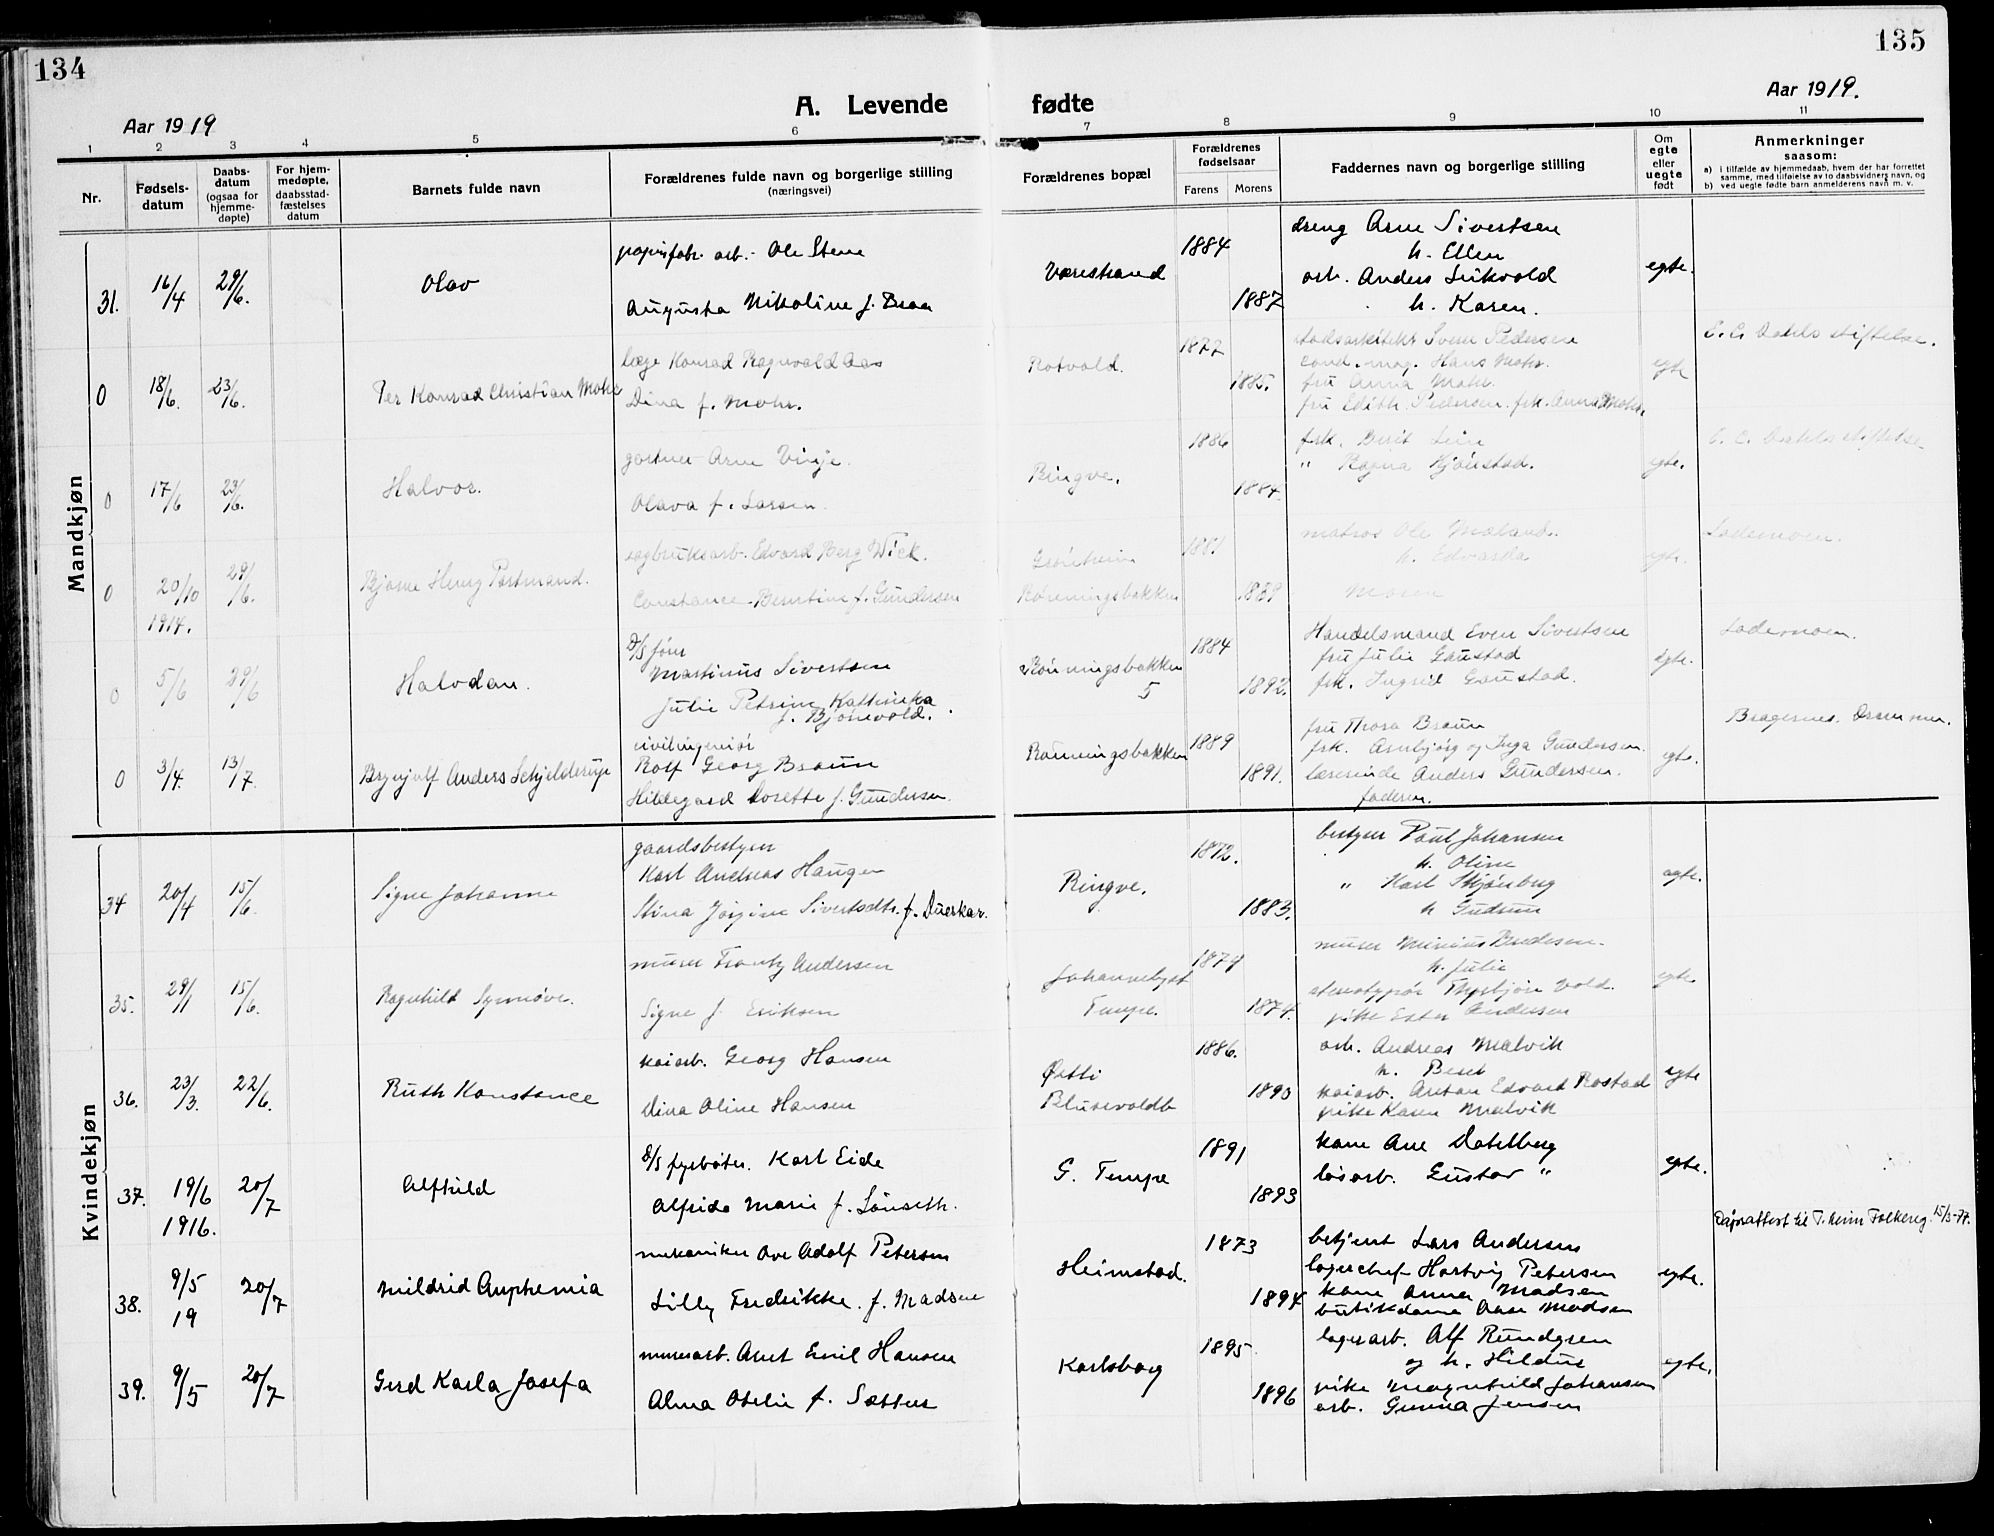 134
135
A. Levende fødte
Aar 1919
Aar 1919.
1 2 3 4 5 6 7 8 9 10 11
Nr.
Fødsels-
datum
Daabs-
datum
(ogsaa for
hjemme-
døpte)
For hjem-
medøpte,
daabsstad-
fæstelses
datum
Barnets fulde navn
Forældrenes fulde navn og borgerlige stilling
(næringsvei)
Forældrenes bopæl
Forældrenes
fødselsaar
Farens
Morens
Faddernes navn og borgerlige stilling
Om
egte
eller
uegte
født
Anmerkninger
saasom:
a) i tilfælde av hjemmedaab, hvem der har forrettet
samme, med tilføielse av to daabsvidners navn, og
b) ved uegte fødte barn anmelderens navn m. v.
Mandkjøn
31.
16/4
29/6.
Olav
papirfabr. arb.- Ole Stene
Augusta Nikoline f. Braa
Værestrand
1884
1887
dreng Arne Sivertsen
h. Ellen
arb. Anders Leikvold
h. Karen.
egte.
0
18/6.
23/6.
Per Konrad Christian Mohr
læge Konrad Ragnvald Aas
Dina f. Mohr.
Rotvold.
1877
1885.
stadsarkitekt Sverre Pedersen
cand. mag. Hans Mohr.
fru Anna Mohr.
fru Edith Pedersen. frk. Anna Mohr
egte
E. C. Dahls stiftelse.
0
17/6
23/6.
Halvor.
gartner Arne Vinje.
Olava f. Larsen.
Ringve.
1886
1884.
frk. Berit Lein
" Ragna Kjønstad.
egte.
E. C. Dahls stiftelse
0
20/10
1914.
29/6.
Bjarne Henry Portmand.
sagbruksarb. Edvard Berg Wick.
Constance Berntine f. Gundersen
Grønheim
Rønningsbakken
1881
1889
matros Ole Mæland.
h. Edvarda
Moren
egte.
Lademoen.
0
5/6
29/6
Halvdan.
D/S fører
Martinus Sivertsen
Julie Petrine Kathinka
f. Bjørnvold.
Rønningsbakken
5
1884
1892.
Handelsmand Even Sivertsen
fru Julie Gaustad
frk. Ingrid Gaustad.
egte.
Lademoen.
0
3/4.
13/7.
Brynjulf Anders Schjelderup
civilingeniør
Rolf Georg Braun
Hildegard Lorette f. Gundersen.
Rønningsbakken
1889
1891.
fru Thora Braun
frk. Arnbjørg og Inga Gundersen.
læreinde Anders Gundersen.
faderen.
egte.
Bragernes. Drammen.
Kvindekjøn
34
20/4
15/6.
Signe Johanne
gaardsbestyrer
Karl Andreas Haugen
Stina Jørgine Sivertsdtr. f. Duerkar.
Ringve.
1872.
1883.
bestyrer Paul Johansen
h. Oline
" Karl Skjønberg
h Gudrun
egte.
35.
29/1
15/6.
Ragnhild Synnøve.
murer Frantz Andersen
Signe f. Eriksen
Johannelyst
Tempe.
1874
1874.
murer Minius Bredesen.
h. Julie
stereotypør Thorbjørn Vold.
pike Ester Andersen
egte.
36.
23/3.
22/6.
Ruth Konstance
kaiarb. Georg Hansen
Dina Oline Hansen
Øetti
Blusevoldb
1886.
1890
arb. Andreas Malvik
h. Beret
kaiarb. Anton Edvard Rostad
pike Karen Malvik
egte
37.
19/6
1916.
20/7
Alfhild
D/S fyrbøter. Karl Eide
Alfrida Marie f. Lønseth.
G. Tempe
1891
1893
kone Ane Dahlberg
løsarb. Gustav "
egte.
38.
9/5
19
20/7
Mildrid Anphemia
mekaniker Ove Adolf Petersen
Lilly Fredrikke. f. Madsen
Heimstad.
1873
1894
betjent Lars Andersen
lagerchef Hartvig Petersen
kone Anna Madsen
butikdame Aase Madsen
egte.
Dåpsattest til T.heim Folkereg. 15/3-77.
39.
9/5
20/7
Gerd Karla Josefa
murerarb. Arnt Emil Hansen
Alma Otelie f. Sætter
Karlsborg
1895
1896
lagerarb. Alf Rundgren
og h. Hildur
pike Magnhild Johansen
arb. Gunnar Jensen
egte.